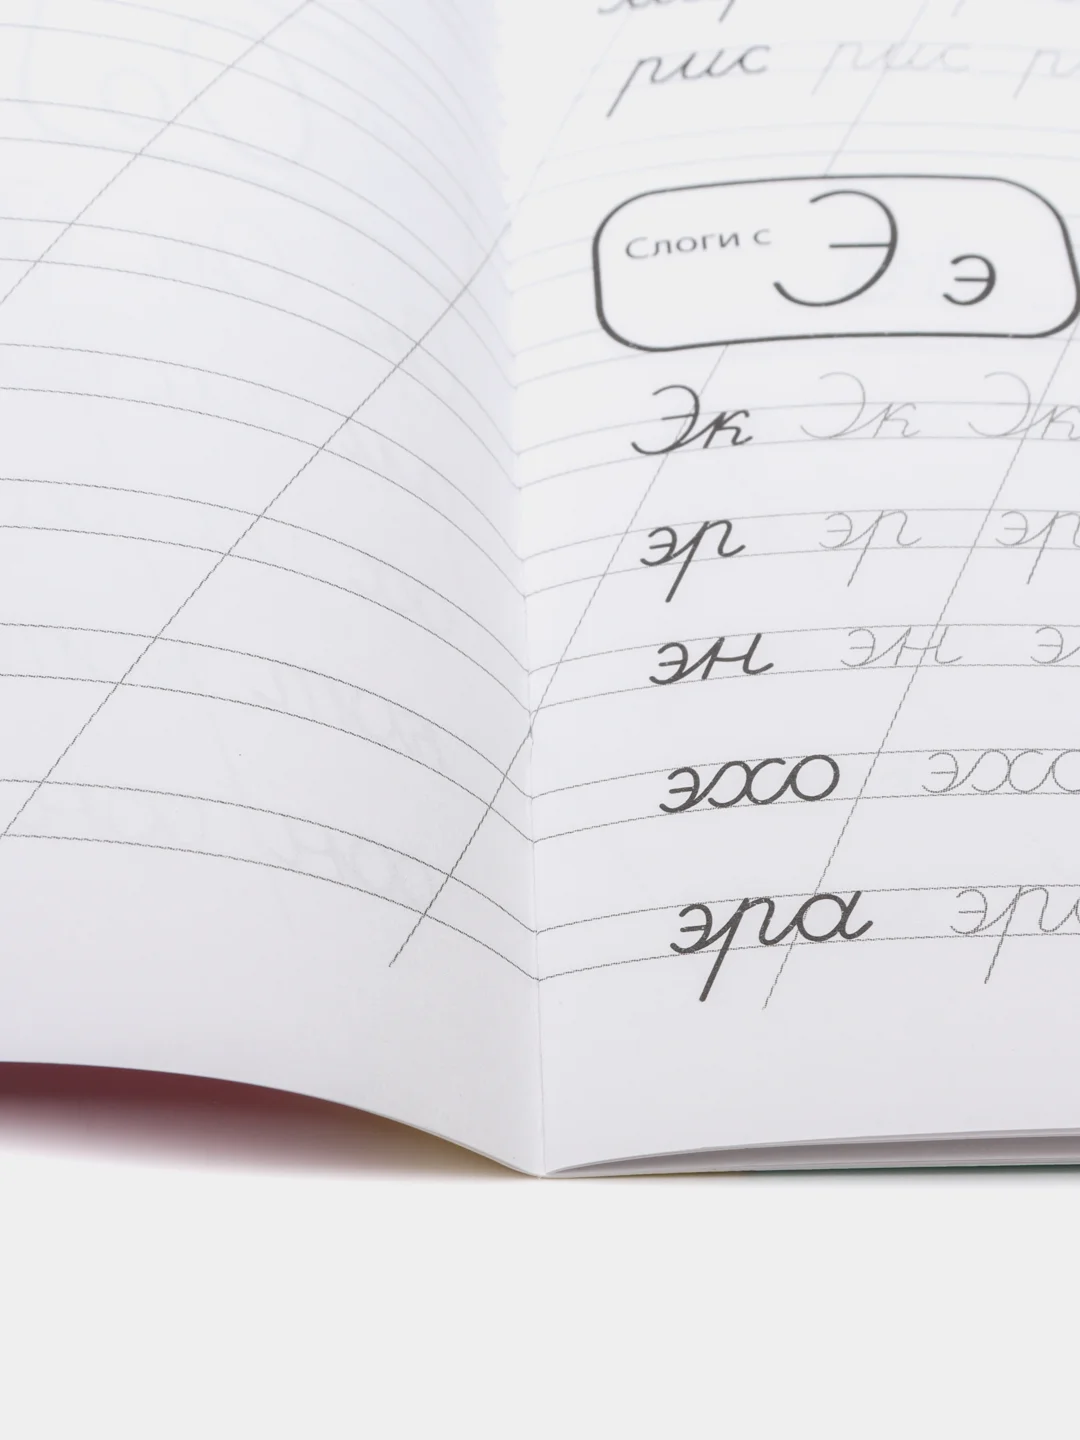 рис рис
Слоги с Э э
Эк Эк Эк
эр эр эр
эн эн э
эхо эхо
эра эра